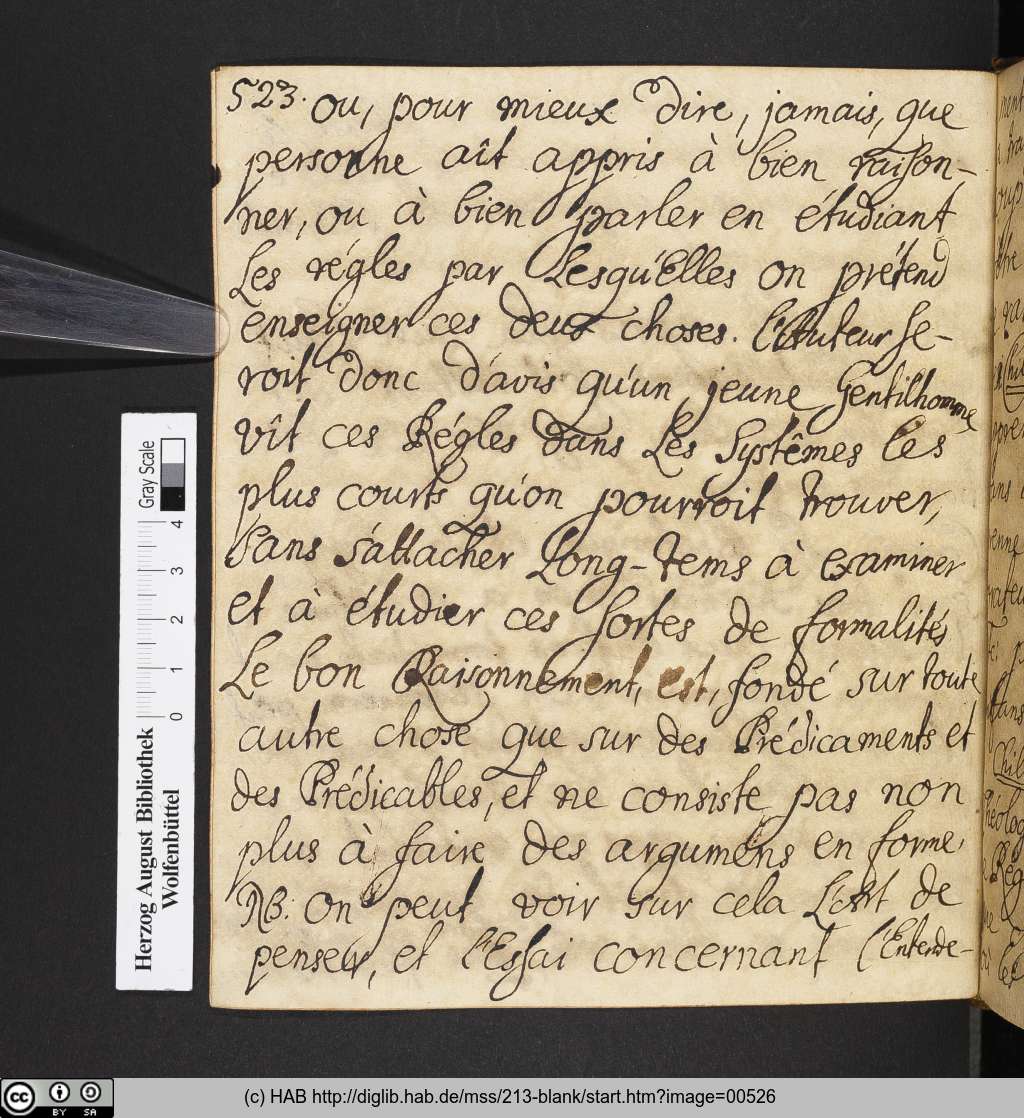 523. ou, pour mieux dire, jamais, que
personne aît appris à bien raison-
ner, ou à bien parler en étudiant
Les régles par Lesqu'Elles on prétend
enseigner ces deux choses. l'Auteur se-
roit donc d'avis qu'un jeune Gentilhomme
vît ces Régles dans Les Systêmes les
plus courts qu'on pourroit trouver,
Sans s'attacher Long-tems à examiner
et à étudier ces sortes de formalités
Le bon Raisonnement, est, fondé sur toute
autre chose que sur des Prédicaments et
des Prédicables, et ne consiste pas non
plus à faire des argumens en forme.
NB: On peut voir sur cela L'art de
penser, et l'Essai concernant l'Entende-
Gray Scale
0 1 2 3 4
Herzog August Bibliothek
Wolfenbüttel
cc BY SA
(c) HAB http://diglib.hab.de/mss/213-blank/start.htm?image=00526